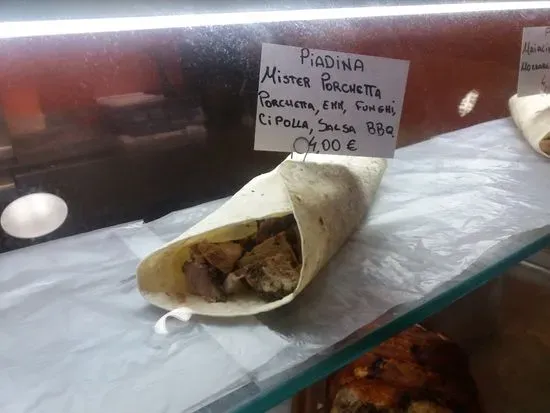 PIADINA
MISTER PORCHETTA
PORCHETTA, EMM, FUNGHI,
CIPOLLA, SALSA BBQ
4,00 €